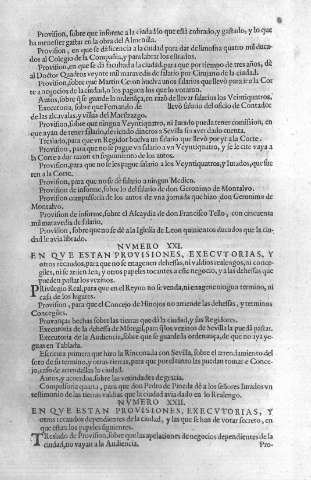 Prouision, sobre que informe a la ciudad lo que está cobrado, y gastado, y lo que
ha menester gastar en la obra del Almenilla.
Prouision, en que se dá licencia a la ciudad para dar de limosna quatro mil ducados
al Colegio de la Compañia, y para labrar los estudios.
Prouision, en que se dá facultad a la ciudad, para que por tiempo de tres años, dè
al Doctor Quadros veynte mil marauedis de salario por Cirujano de la ciudad.
Prouision, sobre que Martin Ceron buelua unos salarios que lleuò para ir a la Corte
a negocios de la ciudad, o los paguen los que lo votaron.
Autos, sobre q̃ se guarde la ordenãça, en razõ de lleuar salarios los Veintiquatros,
Executoria, sobre que Fernando de lleuó salario del oficio de Contador
de las alcaualas, y villas del Maestrazgo.
Prouision, sobre que ningun Veyntiquatro, ni Iurado pueda tener comission, en
que ayan de tener salario, deziendo dentro de Seuilla sin aver dado cuenta.
Traslado, para que vn Regidor buelua un salario que lleuò por yr a la Corte.
Prouision, para que no se pague vn salario a vn Veyntiquatro, y se le cite vaya a
la Corte a dar razon en seguimiento de los autos.
Prouision, para que no se les pague salario a los Veyntiquatros, y Iurados, que fueren
a la Corte.
Prouision, para que no se dé salario a ningun Medico.
Prouision de informe, sobre lo del salario de don Geronimo de Montalvo.
Prouision compulsoria de los autos de vna jornada que hizo don Geronimo de
Montalvo.
Prouision de informe, sobre el Alcaydia de don Francisco Tello, con cincuenta
mil marauedis de salario.
Prouision, sobre que no se dé a la Iglesia de Leon quinientos ducados que la ciudad
le avia librado.
NVMERO XXI.
EN QVE ESTAN PROVISIONES, EXECVTORIAS, Y
otros recaudos, para que no se enagenen dehessas, ni valdios realengos, ni concegiles,
ni se arrienden, y otros papeles tocantes a este negocio, y a las dehessas que
pueden pastar los vezinos.
PRiuilegio Real, para que en el Reyno no se venda, ni enagene ningun termino, ni
casas de los lugares.
Prouision, para que el Concejo de Hinojos no arriende las dehessas, y terminos
Concegiles.
Prouanças hechas sobre las tierras que dà la ciudad, y sus Regidores.
Executoria de la dehessa de Mõregil, para q̃ los vezinos de Seuilla la puedã pastar.
Executoria de la Audiencia, sobre que se guarde la ordenança, de que no aya yeguas
en Tablada.
Escritura primera que hizo la Rinconada con Seuilla, sobre el arrendamiento del
soto de su termino, y otras tierras, para que por el tanto las puedan tomar el Concejo,
caso de arrendallas la ciudad.
Autos, y acuerdos, sobre las vezindades de gracia.
Compulsoria quarta, para que don Pedro de Pineda dè a los señores Iurados vn
testimonio de las tierras valdias que la ciudad avia dado en lo Realengo.
NVMERO XXII.
EN QVE ESTAN PROVISIONES, EXECVTORIAS, Y
otros recaudos dependientes de la ciudad, y las que se han de votar secreto, en
que estan los papeles siguientes.
TRaslado de Prouision, sobre que las apelaciones de negocios dependientes de la
ciudad, no vayan a la Audiencia.
Pro-